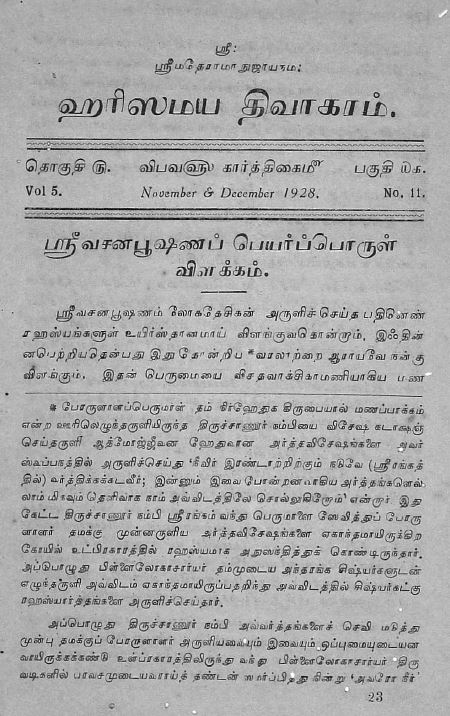 ஸ்ரீ:
ஸ்ரீமதேராமாநுஜாயநம:
ஹரிஸமய திவாகரம்.
தொகுதி ௫. விபவ௵ கார்த்திகை௴ பகுதி ௰௧.
Vol 5. November & December 1928. No. 11.
ஸ்ரீவசனபூஷணப் பெயர்ப்பொருள்
விளக்கம்.
ஸ்ரீவசனபூஷணம் லோகதேசிகன் அருளிச்செய்த பதினெண்
ரஹஸ்யங்களுள் உயிர்ஸ்தானமாய் விளங்குவதொன்றாம். இஃதின்
னபெற்றியதென்பது இது தோன்றிய *வரலாற்றை ஆராயவே நன்கு
விளங்கும். இதன் பெருமையை விசதவாக்சிகாமணியாகிய மண
* பேரருளாளப்பெருமாள் தம் நிர்ஹேதுக கிருபையால் மணப்பாக்கம்
என்ற ஊரிலெழுந்தருளியிருந்த திருச்சாணூர் நம்பியை விசேஷ கடாக்ஷஞ்
செய்தருளி ஆத்மோஜ்ஜீவன ஹேதுவான அர்த்தவிசேஷங்களை அவர்
ஸ்வப்நத்தில் அருளிச்செய்து 'நீவிர் இரண்டாற்றிற்கும் நடுவே (ஸ்ரீரங்கத்
தில்) வர்த்திக்கக்கடவீர்; இன்னும் இவை போன்றனவாகிய அர்த்தங்களெல்
லாம் மிகவும் தெளிவாக நாம் அவ்விடத்திலே சொல்லுகிறோம்' என்றார் இது
கேட்ட திருச்சாணூர் நம்பி ஸ்ரீரங்கம் வந்து பெருமாளை ஸேவித்துப் பேரரு
ளாளர் தமக்கு முன்னருளிய அர்த்தவிசேஷங்களை ஏகாந்தமாயிருக்கிற
கோயில் உட்பிரகாரத்தில் ரஹஸ்யமாக அநுஸந்தித்துக் கொண்டிருந்தார்.
அப்பொழுது பிள்ளைலோகாசார்யர் தம்முடைய அந்தரங்க சிஷ்யர்களுடன்
எழுந்தருளி அவ்விடம் ஏகாந்தமாயிருப்பதறிந்து அவ்விடத்தில் சிஷ்யர்கட்கு
ரஹஸ்யார்த்தங்களை அருளிச்செய்தார்.
அப்பொழுது திருச்சாணூர் நம்பி அவ்வர்த்தங்களைச் செவி மடுத்து
முன்பு தமக்குப் பேரருளாளர் அருளியவையும் இவையும் ஒப்புமையுடையன
வாயிருக்கக்கண்டு உள்ப்ரகாரத்திலிருந்து வந்து பிள்ளைலோகாசார்யர் திரு
வடிகளில் பரவசமுடையவராய்த் தண்டன் ஸமர்ப்பித்து நின்று 'அவரோ நீர்'
23